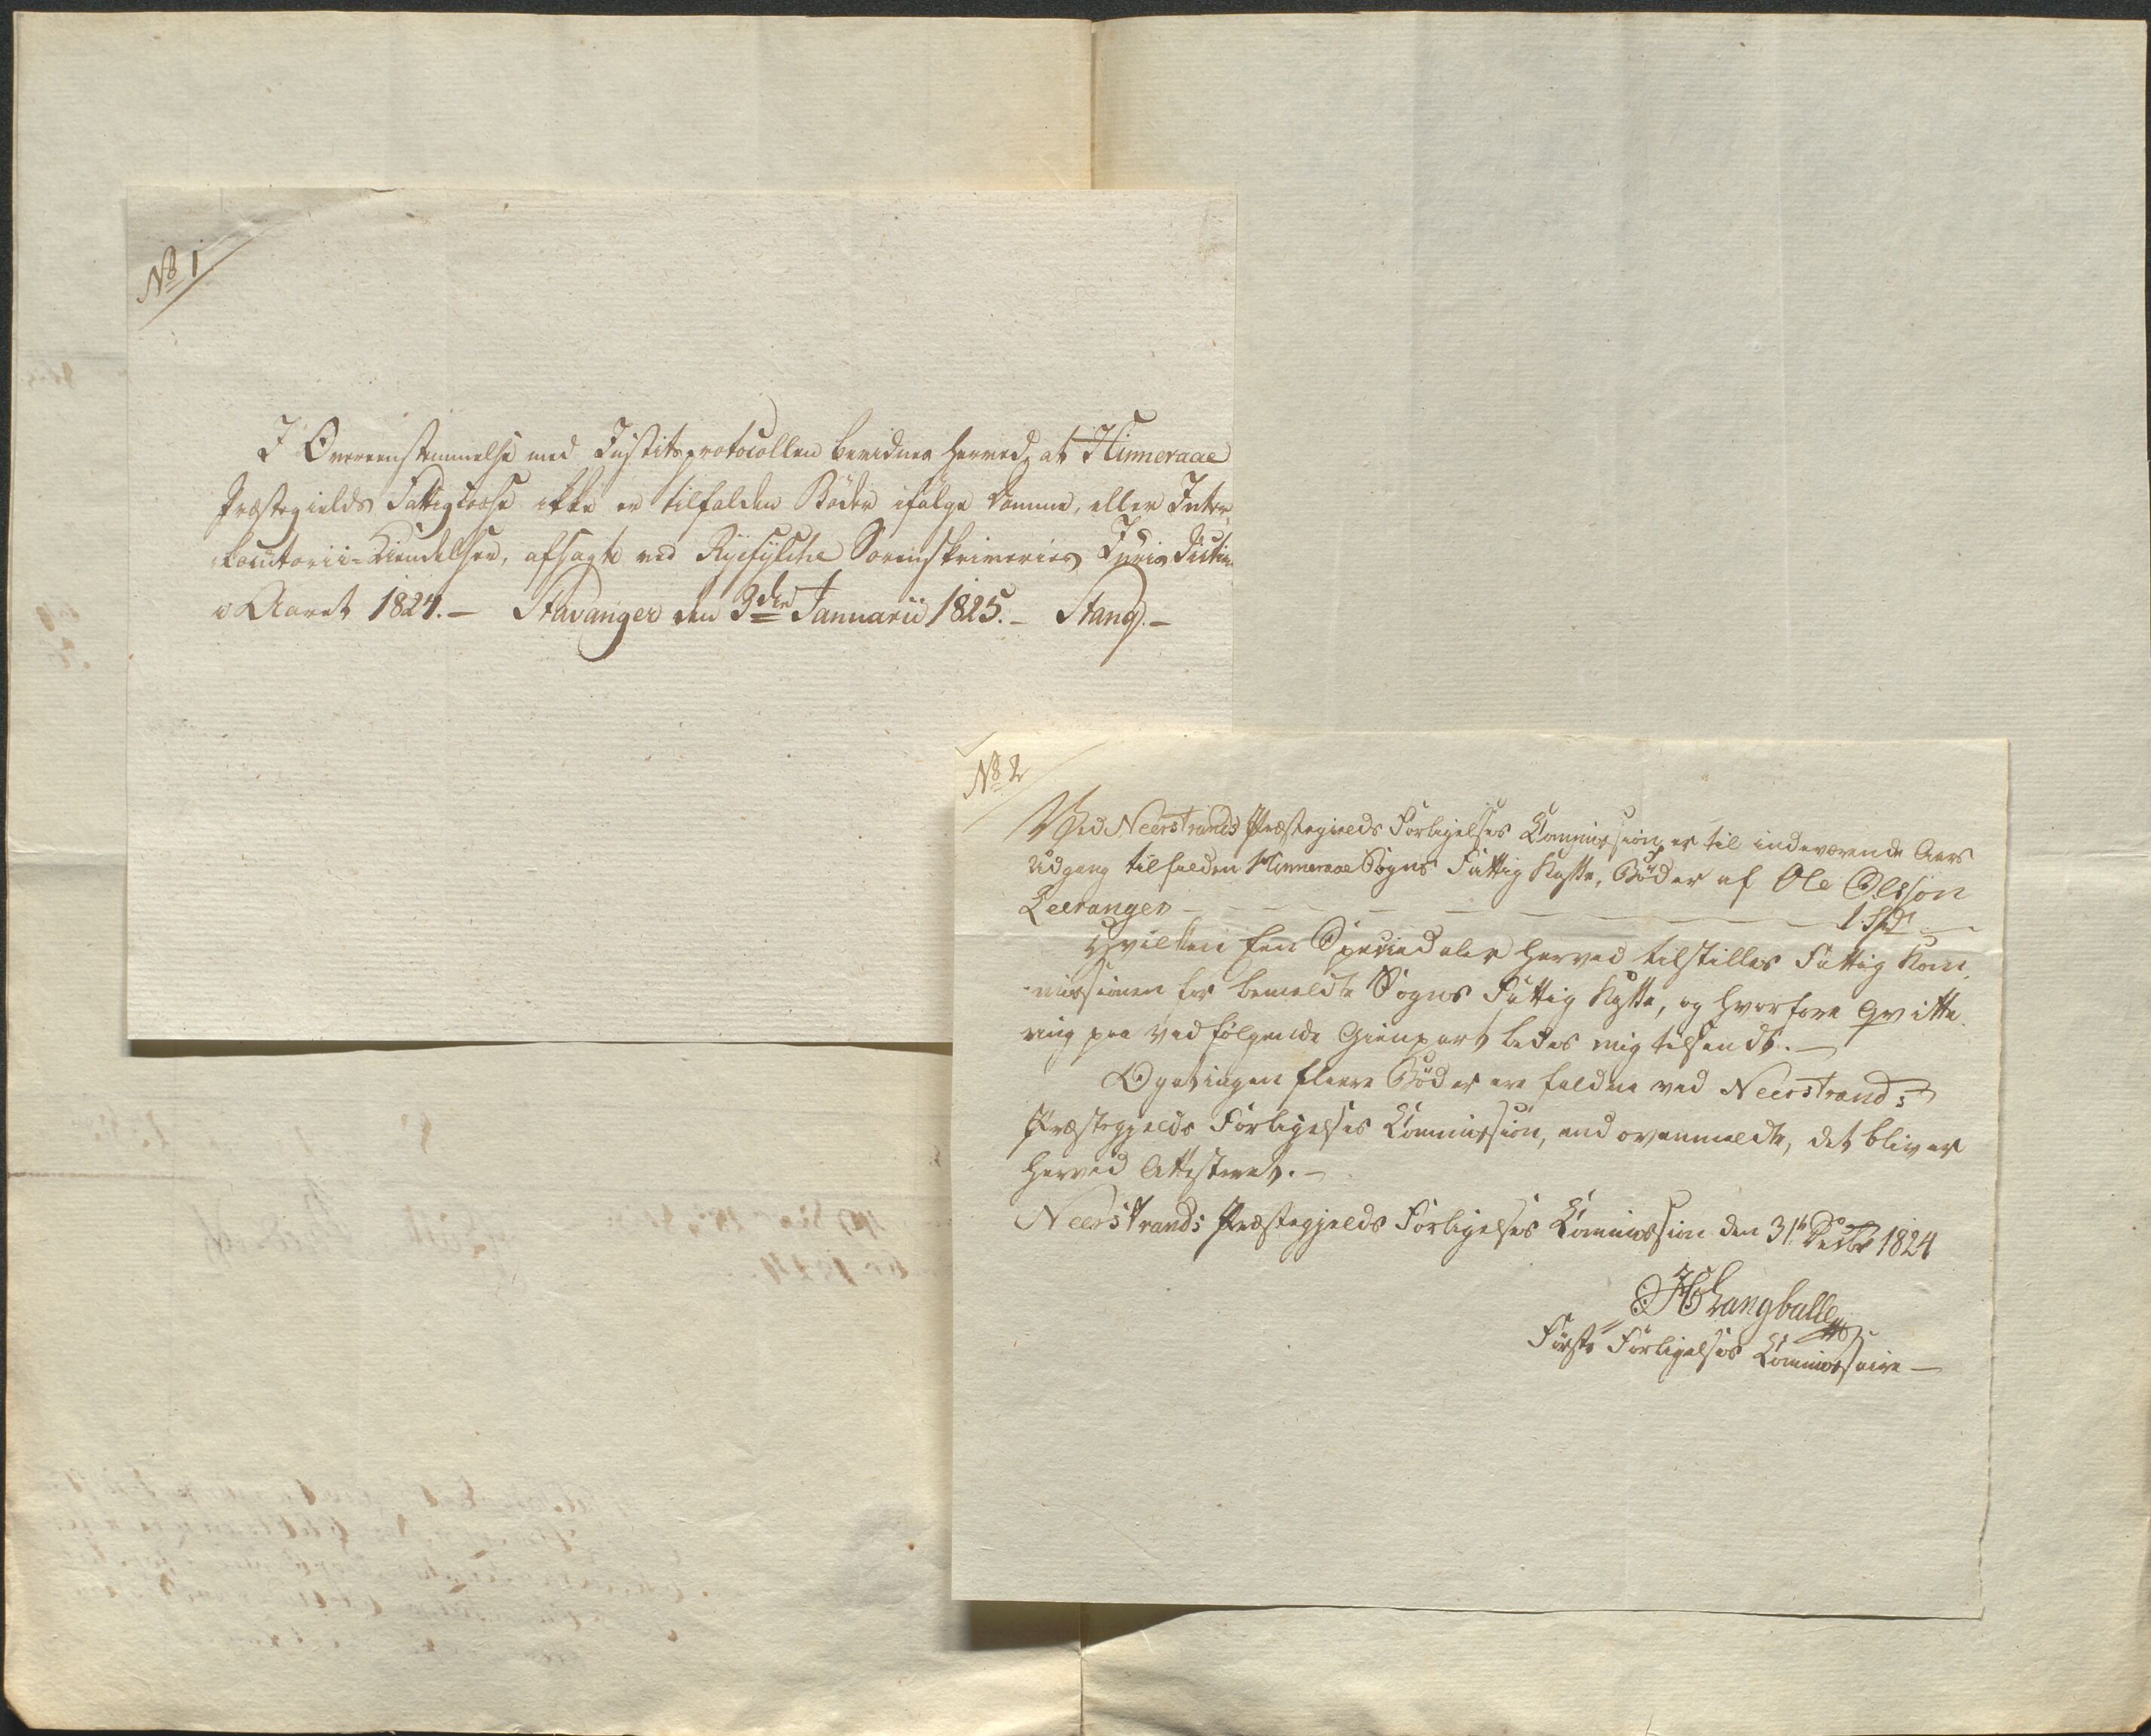 No 1
I Overeensstemmelse med Justitsprotocollen bevidnes herved, at Hinneraae
Præstegields Fattigcasse ikke er tilfalden Bøder ifølge Domme, eller Inter„
„locutorii-Kiendelser, afsagte ved Ryefylche Sorenskriveries Juris Diction
i Aaret 1824.— Stavanger den 3die Januarii 1825.— Stang.—
No 2
Ved Neerstrands Præstegields Forligelses Commission, er til indeværende Aars
Udgang tilfalden Hinneraae Sogns Fattig Kasse, Bøder af Ole Olsøn
Leeranger — — — — — — — 1 Spd —
Hvilken een Speciedaler herved tilstilles Fattig Kom„
missionen for bemeldte Sogns Fattig Kasse, og hvorfore Qvitte„
ring paa vedfølgende Gienpart bedes mig tilsendt.—
Og at ingen fleere Bøder ere faldne ved Neerstrands
Præstegjelds Forligelses Commission, end ovenmeldte, det bliver
herved Attesteret.—
Neerstrands Præstegjelds Forligelses Commission den 31te Decbr 1824
Langballe
Første Forligelses Commissaire —